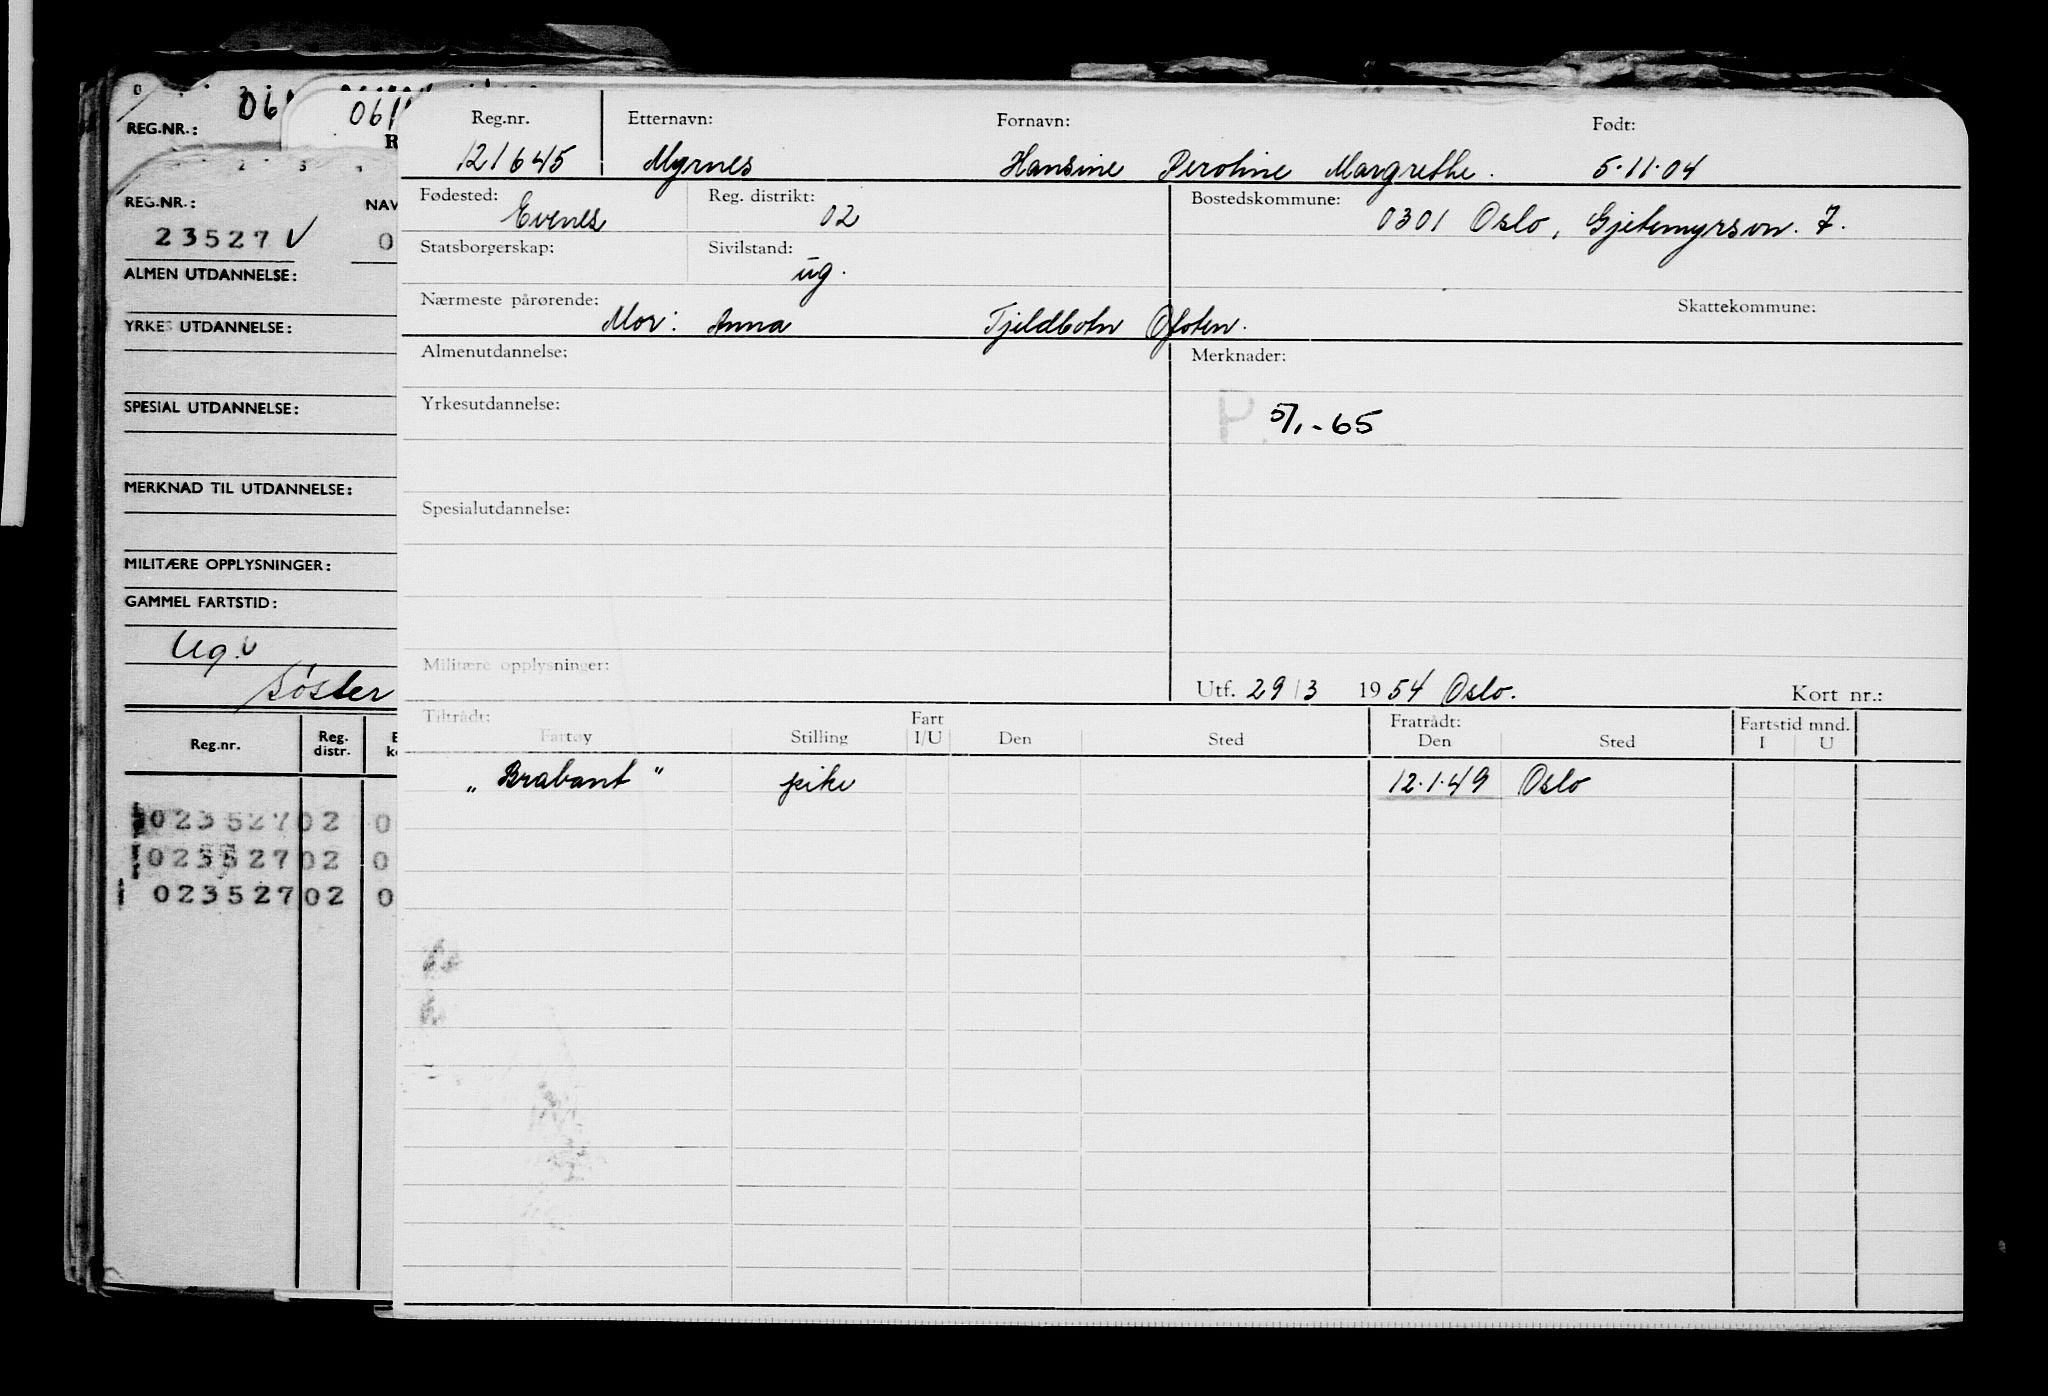 061
0611
REG.NR.:
R
REG.NR.: NAV
23527 V 0
ALMEN UTDANNELSE:
YRKES UTDANNELSE:
SPESIAL UTDANNELSE:
MERKNAD TIL UTDANNELSE:
MILITÆRE OPPLYSNINGER:
GAMMEL FARTSTID:
Ug. v
Søster
Reg.nr. Reg. distr.
023527 02 0
023527 02 0
023527 02 0
Reg.nr. Etternavn: Fornavn: Født:
121645 Myrnes Hansine Peroline Margrethe. 5.11.04
Fødested: Reg. distrikt: Bostedskommune:
Evenes 02 0301 Oslo, Gjetemyrsvn. 7.
Statsborgerskap: Sivilstand:
ug.
Nærmeste pårørende: Skattekommune:
Mor: Anna Tjeldbotn Ofoten.
Almenutdannelse: Merknader:
Yrkesutdannelse:
P. 5/1-65
Spesialutdannelse:
Militære opplysninger:
Utf. 29/3 1954 Oslo. Kort nr.:
Tiltrådt: Fart Fratrådt: Fartstid mnd.
Fartøy Stilling I/U Den Sted Den Sted I U
„Brabant" pike 12.1.49 Oslo